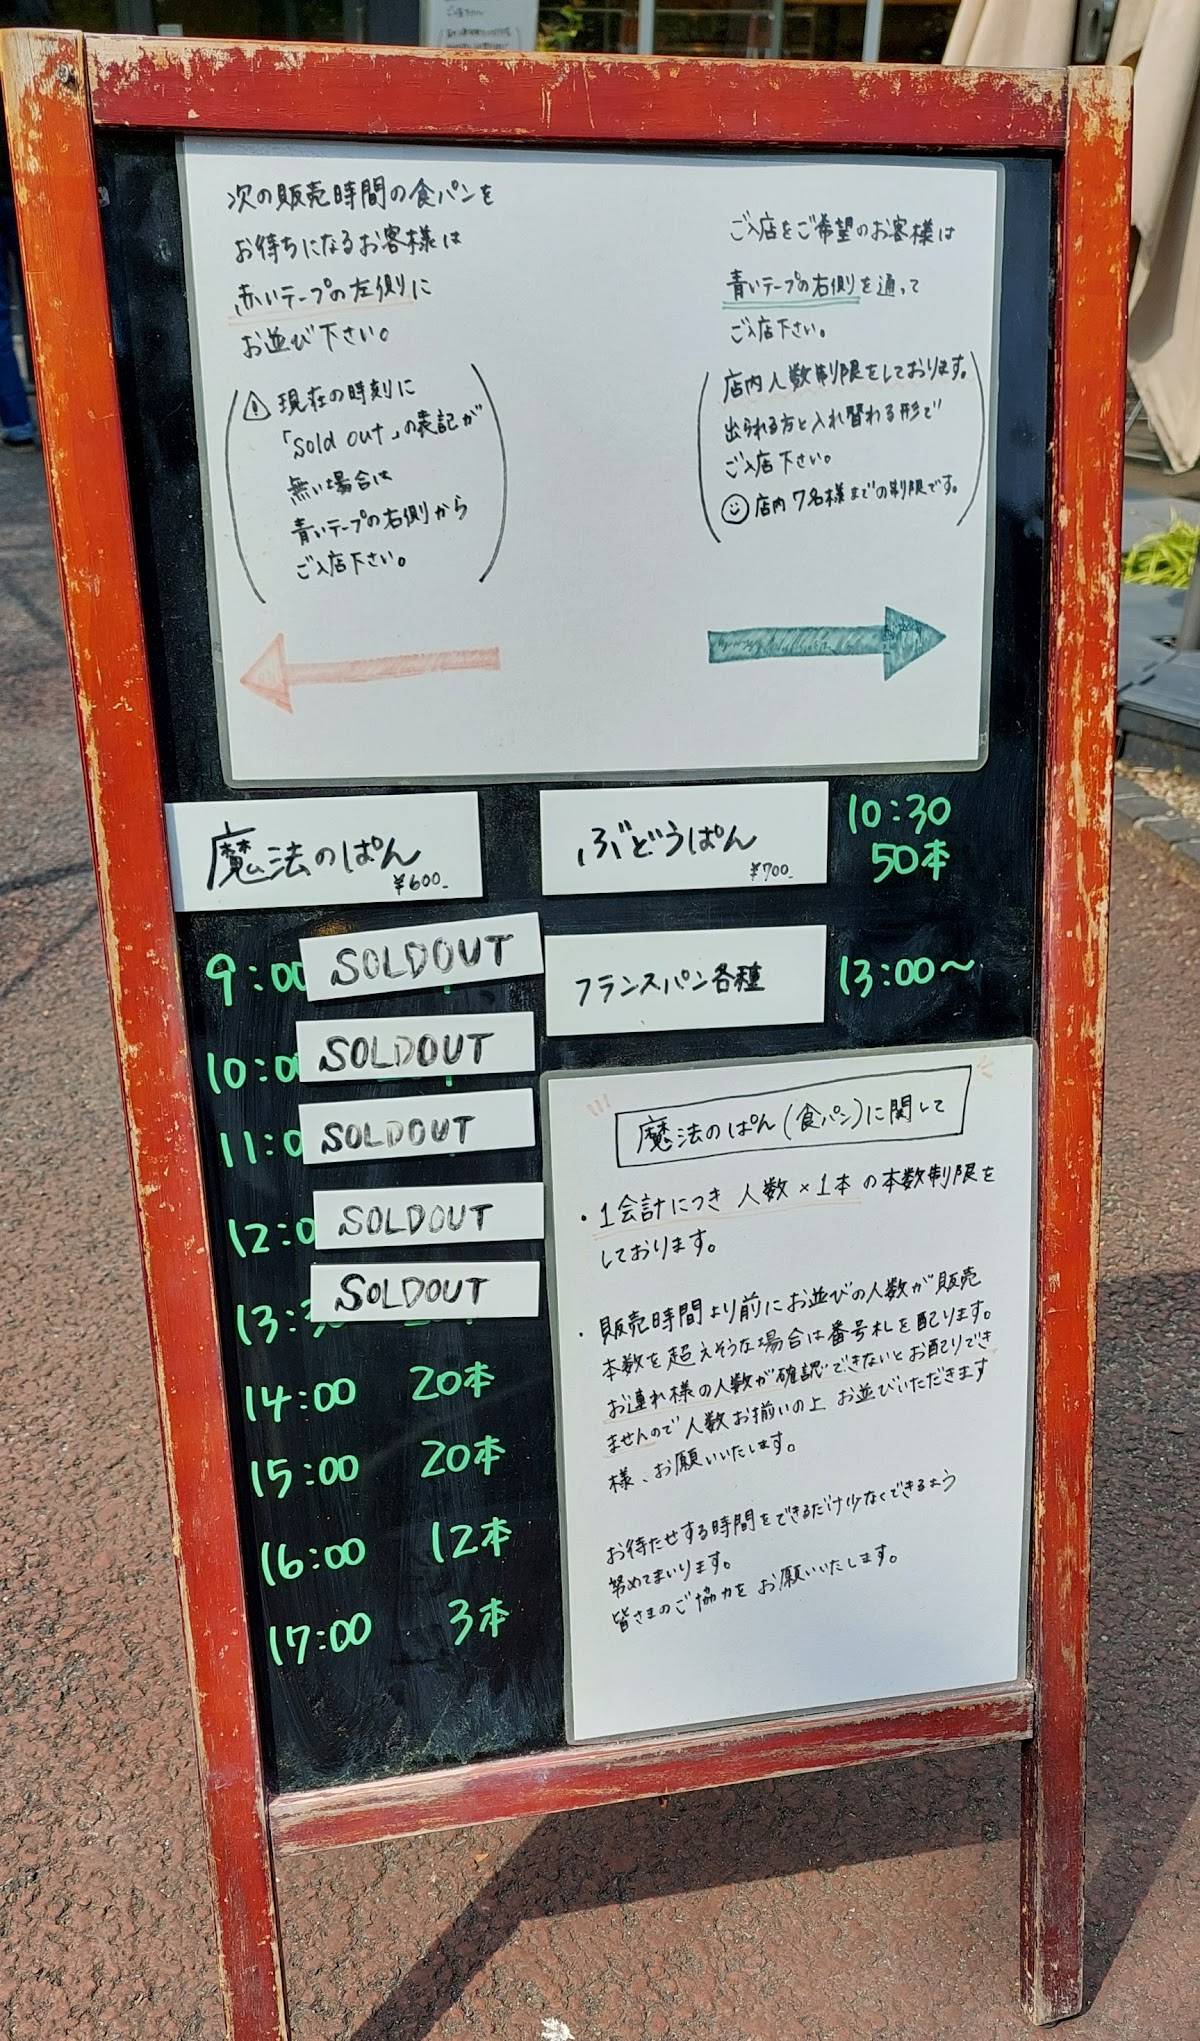 次の販売時間の食パンを
お待ちになるお客様は
赤いテープの左側に
お並び下さい。
現在の時刻に
「Sold out」の表記が
無い場合は
青いテープの右側から
ご入店下さい。
ご入店をご希望のお客様は
青いテープの右側を通って
ご入店下さい。
店内人数制限をしております。
出られる方と入れ替わる形で
ご入店下さい。
店内7名様までの制限です。
魔法のぱん
¥600-
9:00 SOLDOUT
10:00 SOLDOUT
11:0 SOLDOUT
12:0 SOLDOUT
13:3 SOLDOUT
14:00 20本
15:00 20本
16:00 12本
17:00 3本
ぶどうぱん
¥700-
10:30
50本
フランスパン各種 13:00〜
魔法のぱん(食パン)に関して
・1会計につき 人数×1本の本数制限を
しております。
・販売時間より前にお並びの人数が販売
本数を超えそうな場合は番号札を配ります。
お連れ様の人数が確認できないとお配りでき
ませんので人数お揃いの上、お並びいただきます
様、お願いいたします。
お待たせする時間をできるだけ少なくできるよう
努めてまいります。
皆さまのご協力をお願いいたします。